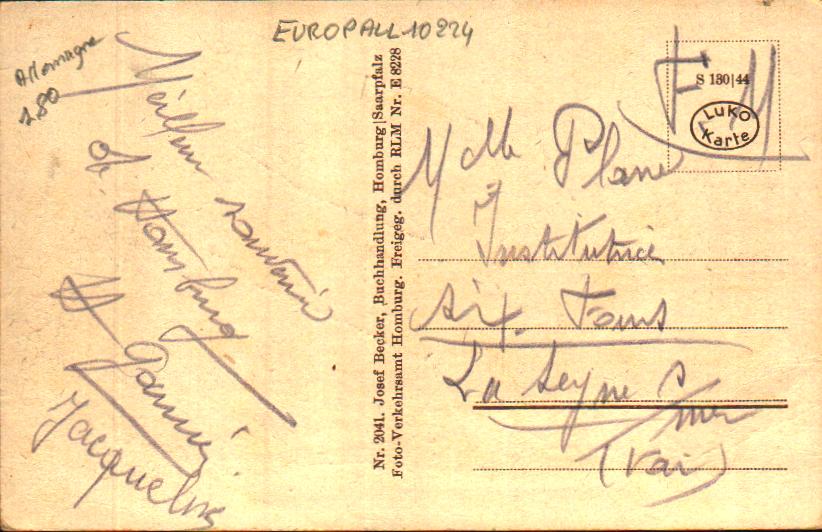 EUROPALL10224
Allemagne
180
Meilleur souvenir
de Hombourg
Jacqueline
Nr. 2041. Josef Becker, Buchhandlung, Homburg|Saarpfalz
Foto-Verkehrsamt Homburg. Freigeg. durch RLM Nr. E 8228
F M
S 130|44
LuKO
Karte
Melle Plane
Institutrice
Six-Fours
La Seyne S/mer
(Var)